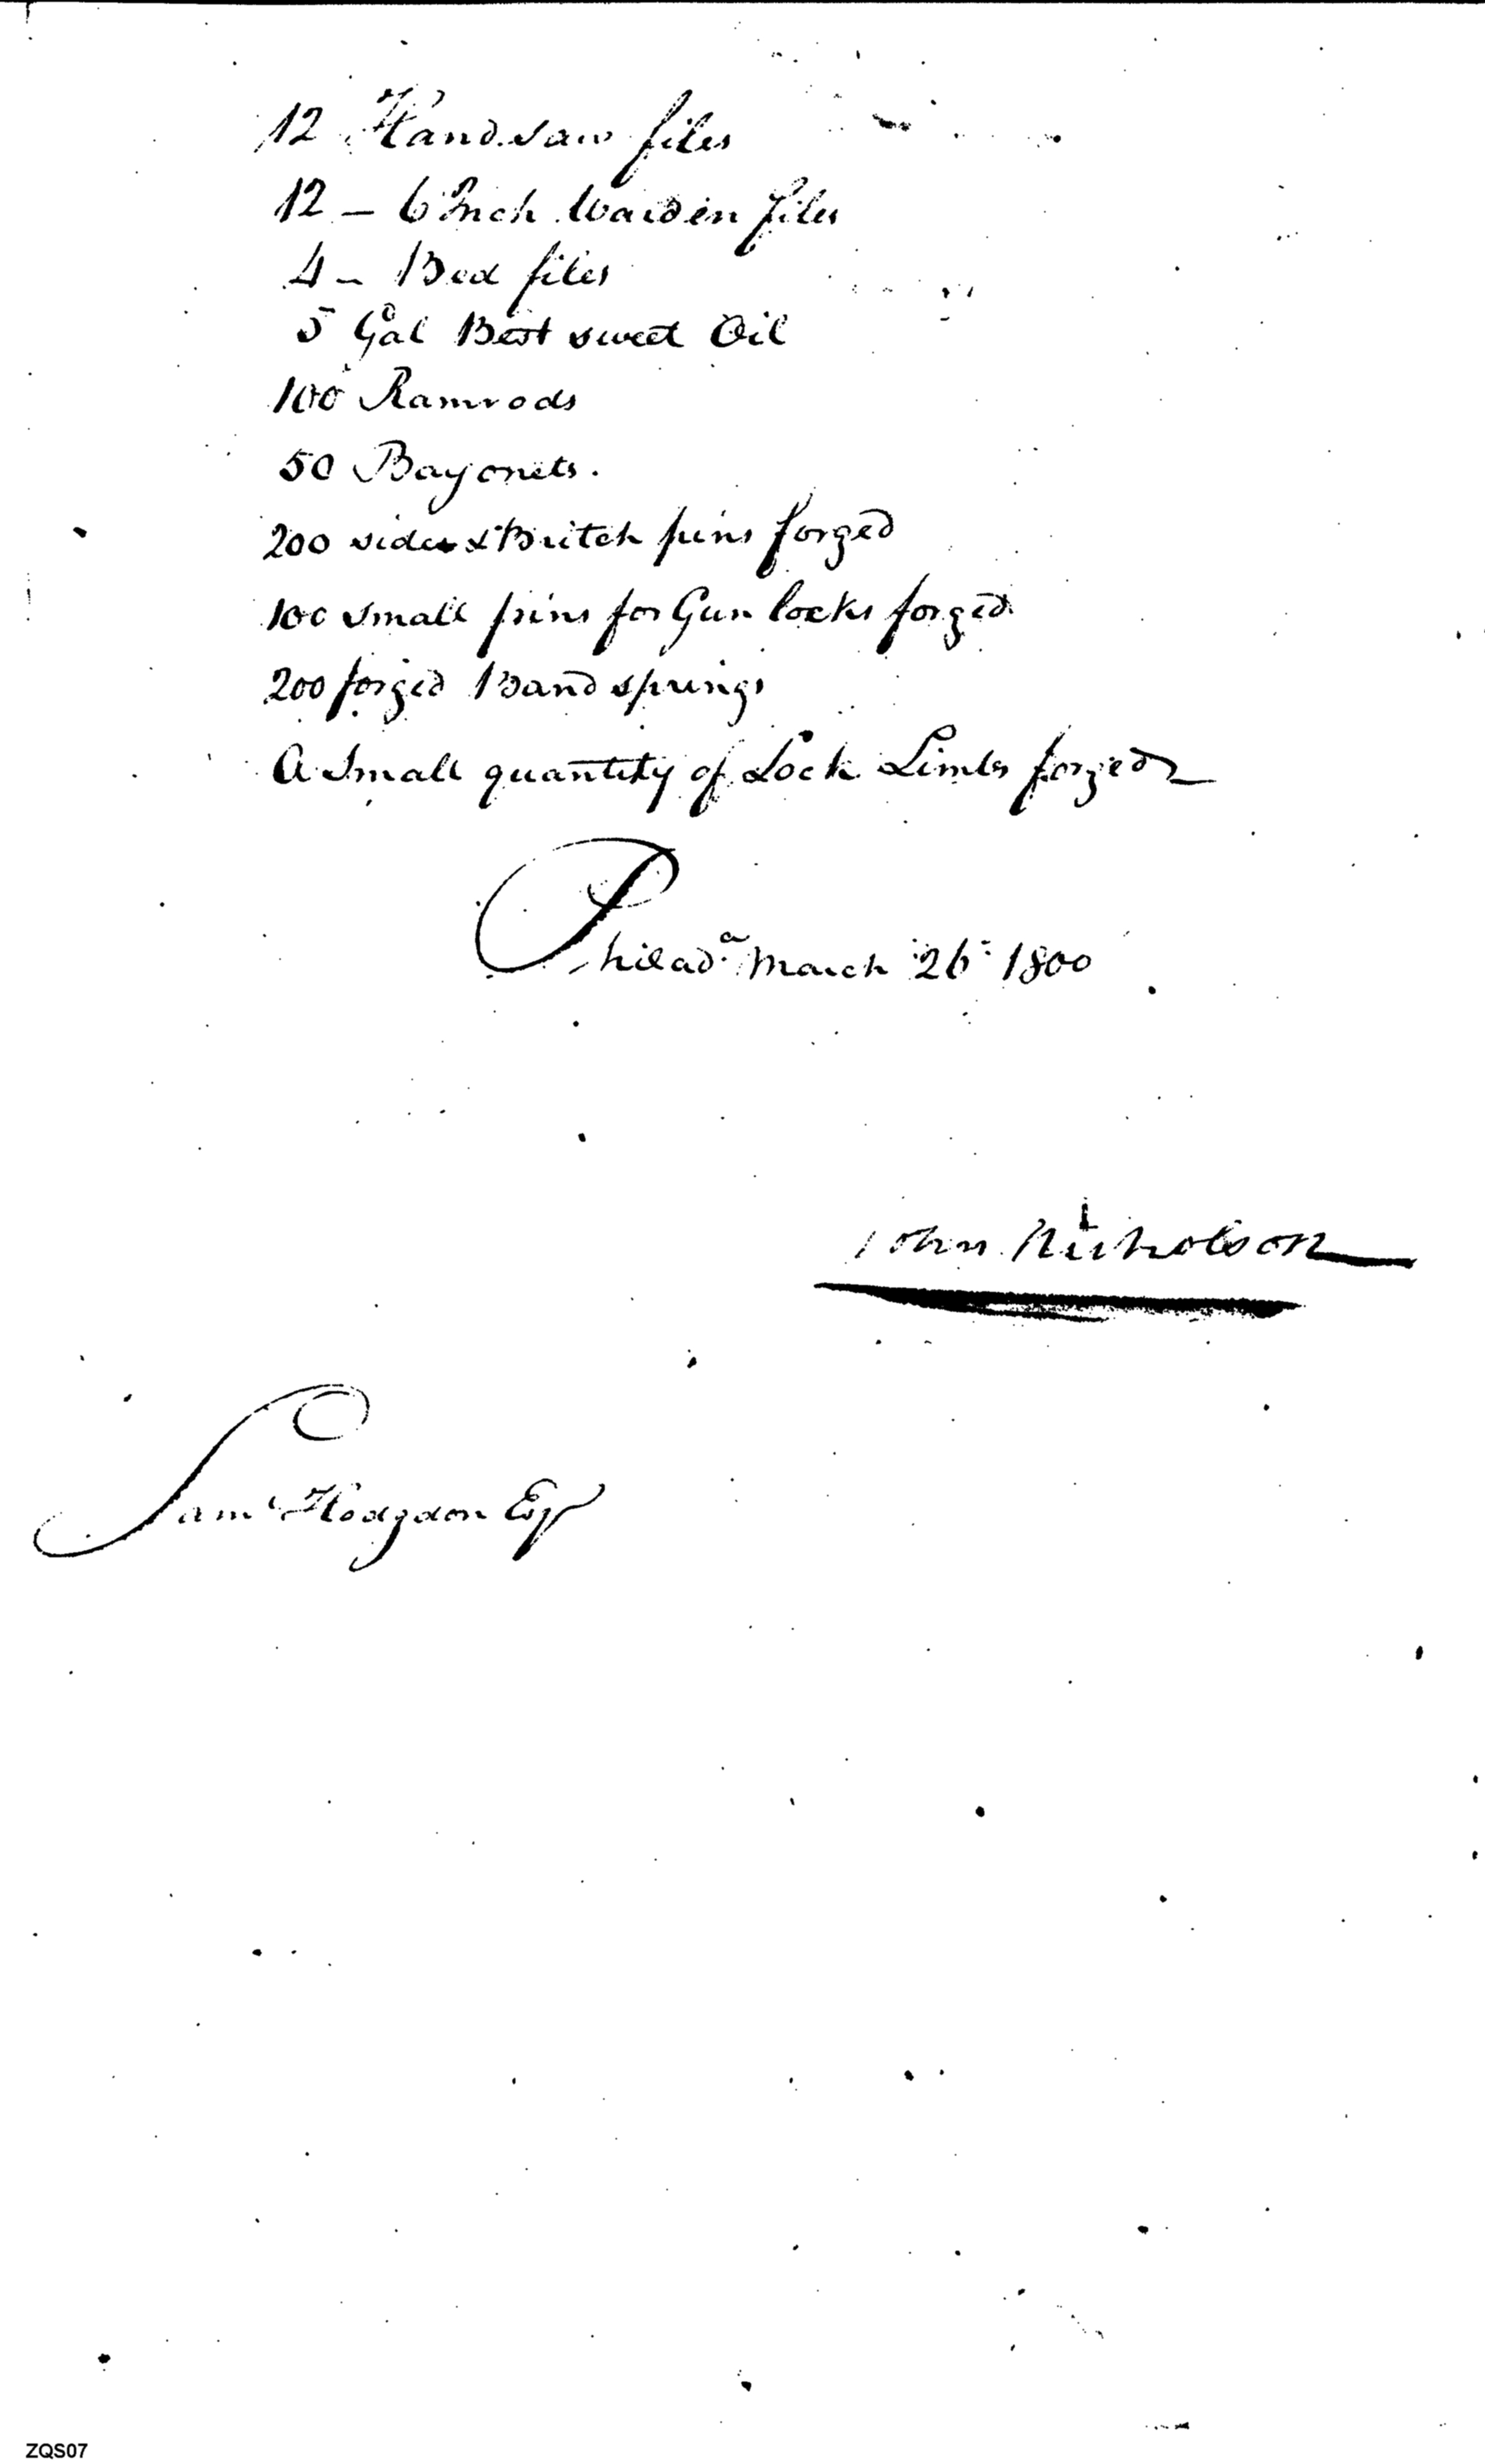 12 Hand saw files
12 — 6 Inch Warden files
4 — Bed files
5 Gal Best sweet Oil
100 Ramrods
50 Bayonets.
200 sides & Britch pins forged
100 small pins for Gun locks forged
200 forged Band springs
A Small quantity of Lock Limbs forged
Philad.ª March 26: 1800
John Nicholson
Saml Hodgdon Esqr
ZQS07